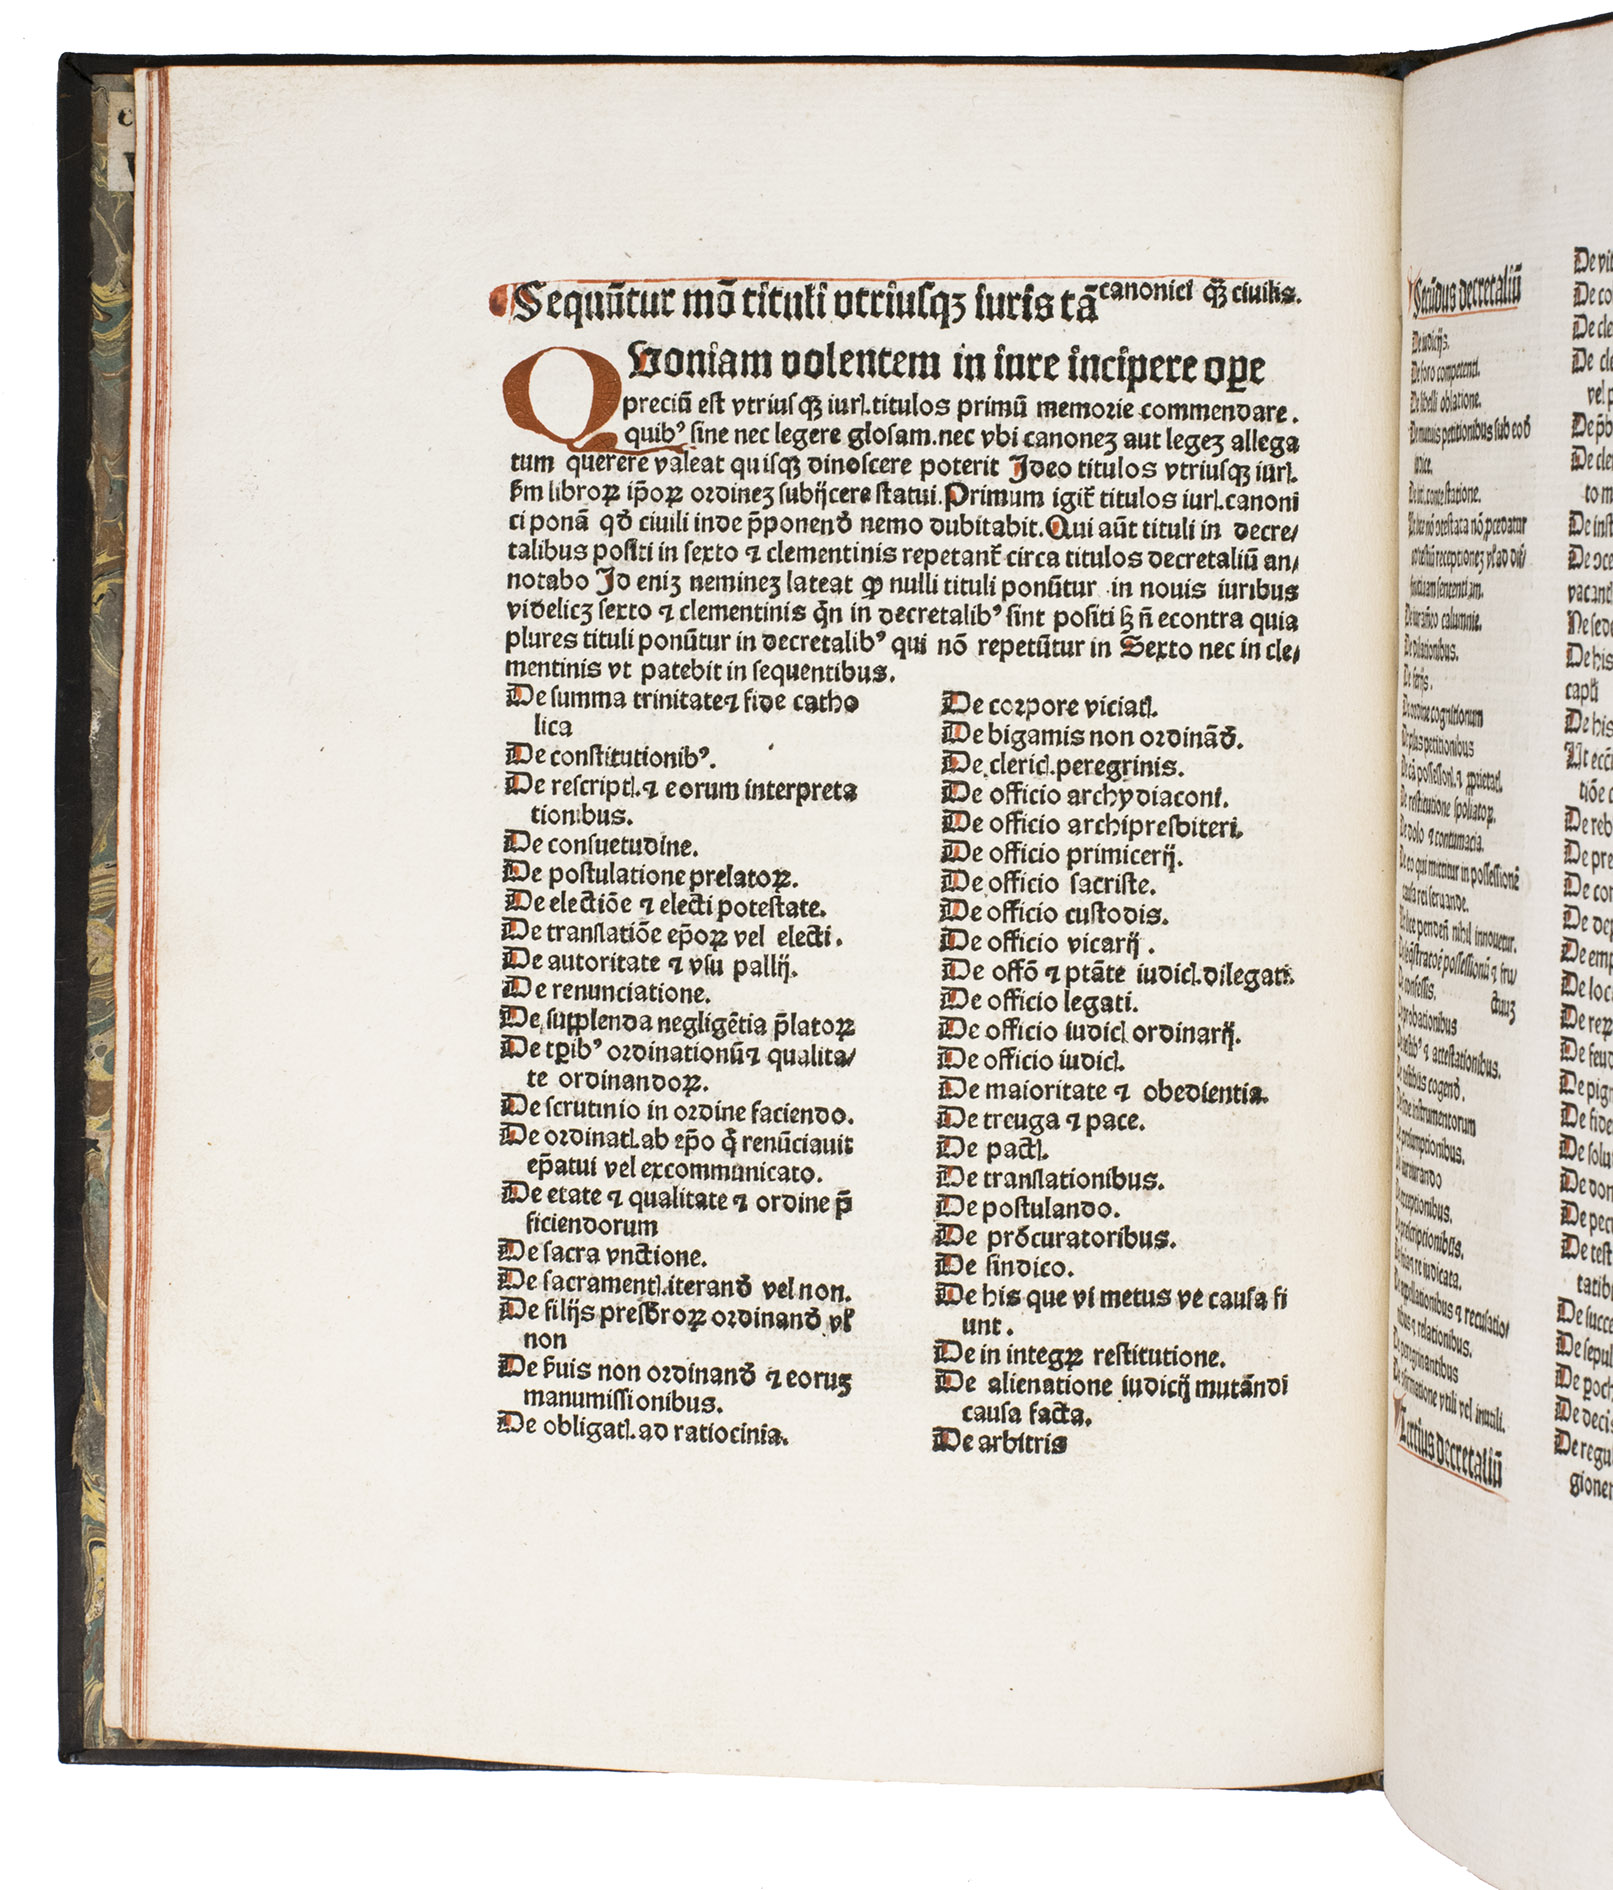 Sequūtur mō tituli vtriusqꝫ iuris tā canonici qꝫ ciuilis.
QVoniam volentem in iure incipere ope
preciū est vtriusqꝫ iurꝭ. titulos primū memorie commendare.
quibꝰ sine nec legere glosam. nec vbi canoneꝫ aut legeꝫ allega
tum querere valeat quisqꝫ dinoscere poterit Ideo titulos vtriusqꝫ iurꝭ.
ẜm libroꝝ ip̄oꝝ ordineꝫ subijcere statui. Primum igit̄ titulos iurꝭ. canoni
ci ponā qd̄ ciuili inde p̄ponend̄ nemo dubitabit. Qui aūt tituli in decre/
talibus positi in sexto ⁊ clementinis repetant̄ circa titulos decretaliū an/
notabo Id eniꝫ nemineꝫ lateat ꝙ nulli tituli ponūtur in nouis iuribus
videlicꝫ sexto ⁊ clementinis qn̄ in decretalibꝰ sint positi sꝫ n̄ econtra quia
plures tituli ponūtur in decretalibꝰ qui nō repetūtur in Sexto nec in cle/
mentinis vt patebit in sequentibus.
De summa trinitate ⁊ fide catho
lica
De constitutionibꝰ.
De rescriptꝭ. ⁊ eorum interpreta
tionibus.
De consuetudine.
De postulatione prelatoꝝ.
De electiōe ⁊ electi potestate.
De translatiōe ep̄oꝝ vel electi.
De autoritate ⁊ vsu pallij.
De renunciatione.
De supplenda negligētia p̄latoꝝ
De tꝑibꝰ ordinationū ⁊ qualita/
te ordinandoꝝ.
De scrutinio in ordine faciendo.
De ordinatꝭ. ab ep̄o q̄ renūciauit
ep̄atui vel excommunicato.
De etate ⁊ qualitate ⁊ ordine p̄
ficiendorum
De sacra vnctione.
De sacramentꝭ. iterand̄ vel non.
De filijs presb̄roꝝ ordinand̄ vl̄
non
De ẜuis non ordinand̄ ⁊ eoruꝫ
manumissionibus.
De obligatꝭ. ad ratiocinia.
De corpore viciatꝭ.
De bigamis non ordinād̄.
De clericꝭ. peregrinis.
De officio archydiaconi.
De officio archipresbiteri.
De officio primicerij.
De officio sacriste.
De officio custodis.
De officio vicarij.
De offō ⁊ ptāte iudicꝭ. dilegati.
De officio legati.
De officio iudicꝭ ordinarij.
De officio iudicꝭ.
De maioritate ⁊ obedientia.
De treuga ⁊ pace.
De pactꝭ.
De translationibus.
De postulando.
De prōcuratoribus.
De sindico.
De his que vi metus ve causa fi
unt.
De in integꝝ restitutione.
De alienatione iudicij mutāndi
causa facta.
De arbitris
Secūdus decretaliū
De iudicijs.
De foro competenti.
De libelli oblatione.
De mutuis petitionibus sub eod̄
iudice.
De lit. contestatione.
De iuramēto calumnie.
De dilationibus.
De ferijs.
De ordine cognitionum
De plus petitionibus
De cā possessionꝭ. ⁊ ꝓprietatꝭ.
De restitutione spoliatoꝝ.
De dolo ⁊ contumacia.
De eo qui mittitur in possessionē
causa rei seruande.
Ut lite pendēn̄ nihil innouetur.
De confessis.
De probationibus
De testibꝰ ⁊ attestationibus.
De testibus cogend̄.
De fide instrumentorum
De presumptionibus.
De iureiurando
De exceptionibus.
De prescriptionibus.
De appellationibus ⁊ recusatio/
nibus ⁊ relationibus.
De peregrinantibus
De confirmatione vtili vel inutili.
Tertius decretaliū